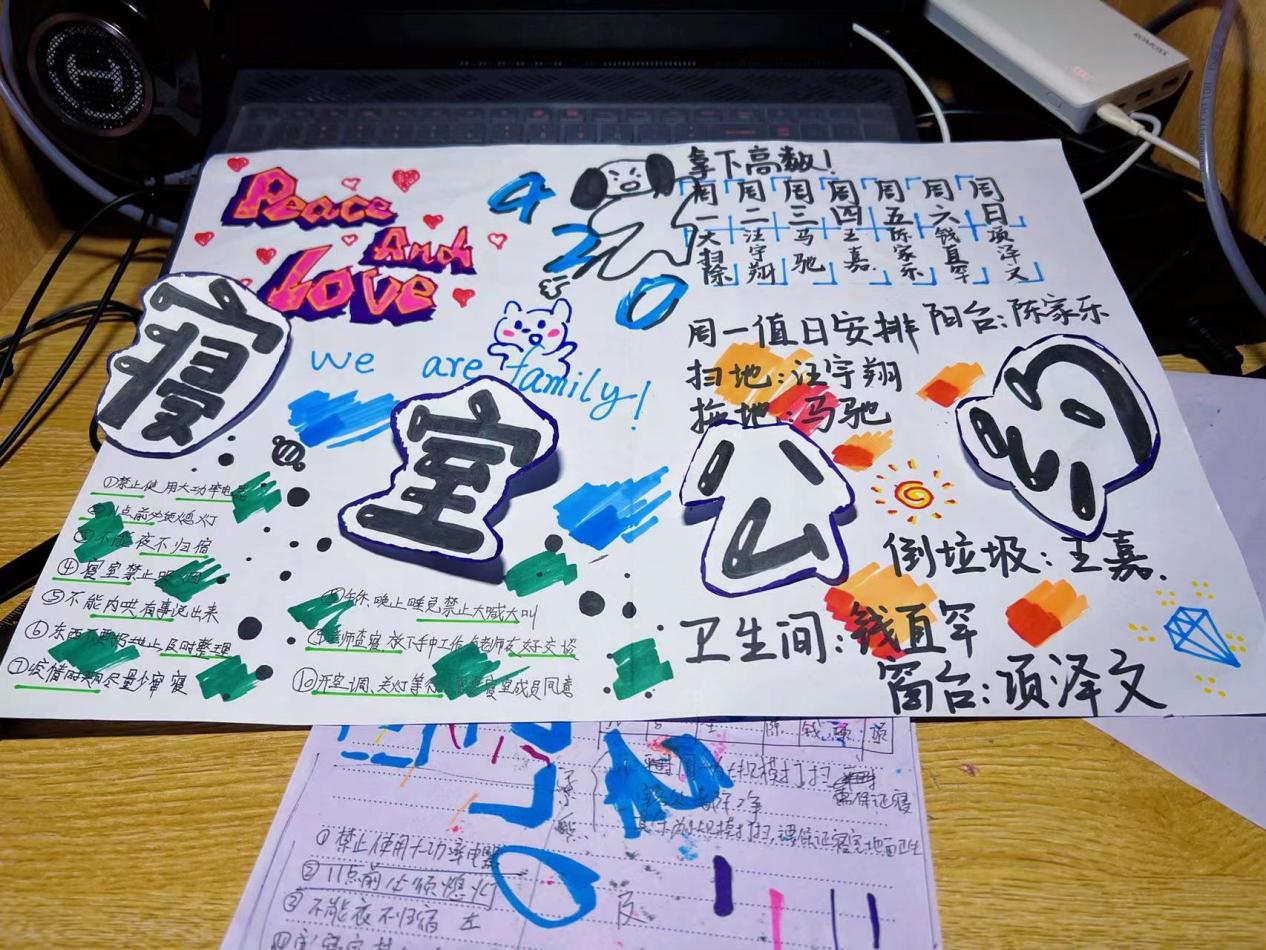 Peace
And
Love
420
拿下高数!
周一 周二 周三 周四 周五 周六 周日
大扫除 汪宇翔 马驰 王嘉 陈家乐 钱直罕 项泽文
we are family!
寝室公约
周一值日安排 阳台:陈家乐
扫地:汪宇翔
拖地:马驰
倒垃圾:王嘉.
卫生间:钱直罕
窗台:项泽文
①禁止使用大功率电器
②11点前必须熄灯
③不能夜不归宿
④寝室禁止吸烟
⑤不能内哄,有事说出来
⑥东西不要扔地上及时整理
⑦疫情时期尽量少窜寝
⑧午休、晚上睡觉禁止大喊大叫
放下手中工作与老师友好交谈
⑩开空调、关灯等行 寝室成员同意
ROMOSS
①禁止使用大功率电器
②11点前必须熄灯
③不能夜不归宿